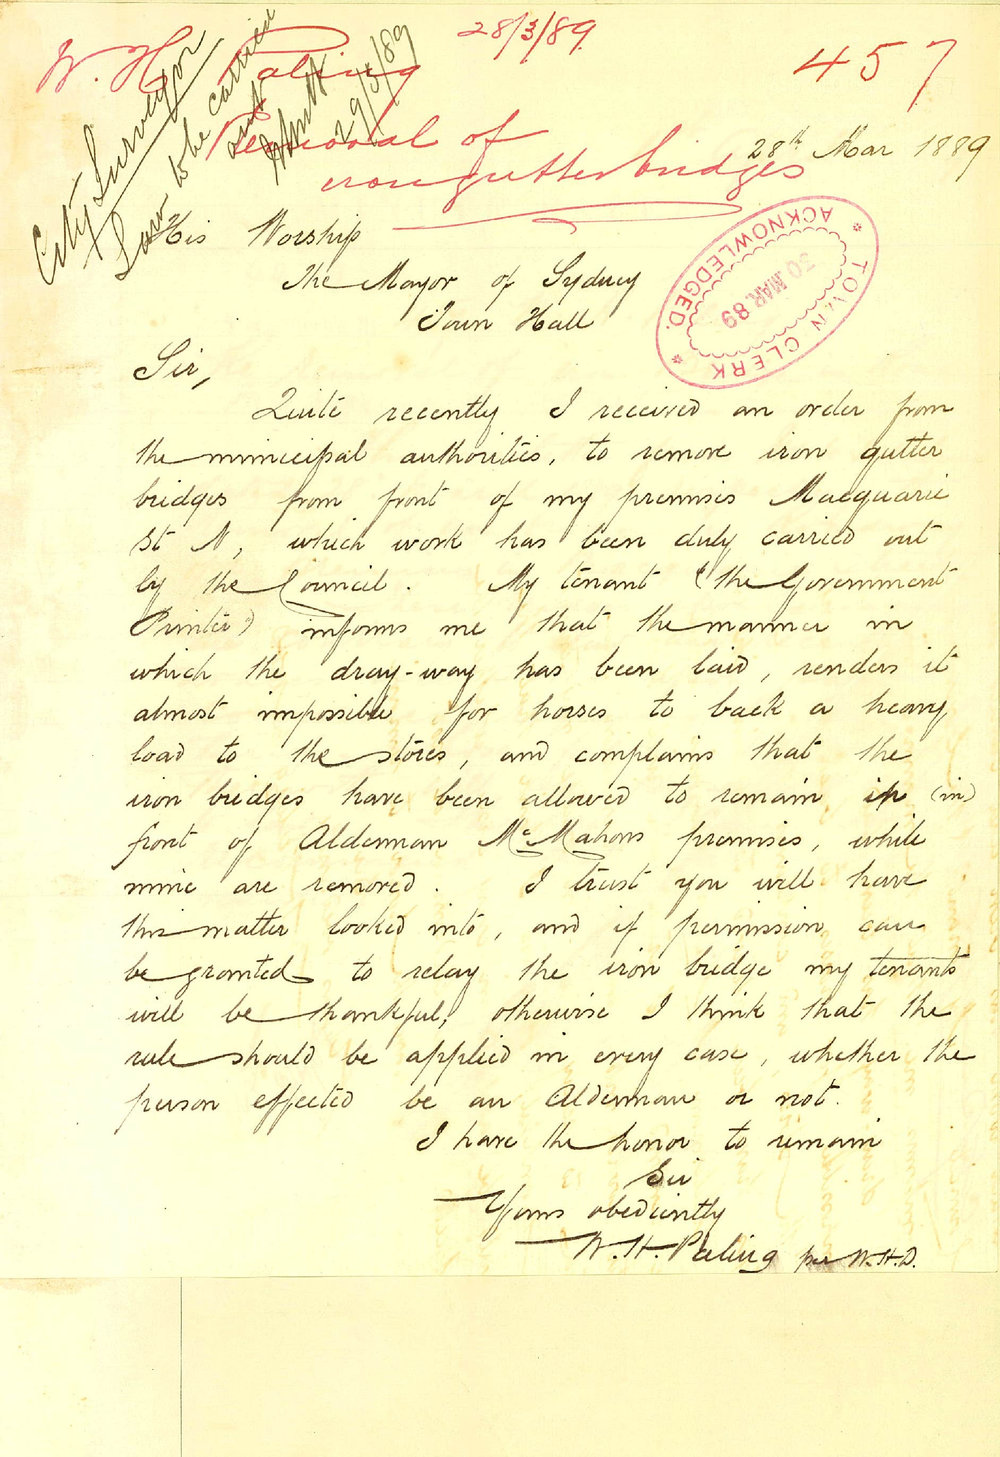 28/3/89
W. H. Paling
457
Removal of
iron gutter bridges
City Surveyor
Law to be carried
out
29/3/89
28th Mar 1889
His Worship
The Mayor of Sydney
Town Hall
TOWN CLERK
ACKNOWLEDGED.
30 MAR 89
Sir,
Quite recently I received an order from
the municipal authorities, to remove iron gutter
bridges from front of my premises Macquarie
St N, which work has been duly carried out
by the Council. My tenant (the Government
Printer) informs me that the manner in
which the dray-way has been laid, renders it
almost impossible for horses to back a heavy
load to the stores, and complains that the
iron bridges have been allowed to remain in (in)
front of Alderman McMahons premises, while
mine are removed. I trust you will have
this matter looked into, and if permission can
be granted to relay the iron bridge my tenants
will be thankful, otherwise I think that the
rule should be applied in every case, whether the
person effected be an Alderman or not.
I have the honor to remain
Sir
Yours obediently
W. H. Paling per W.H.D.